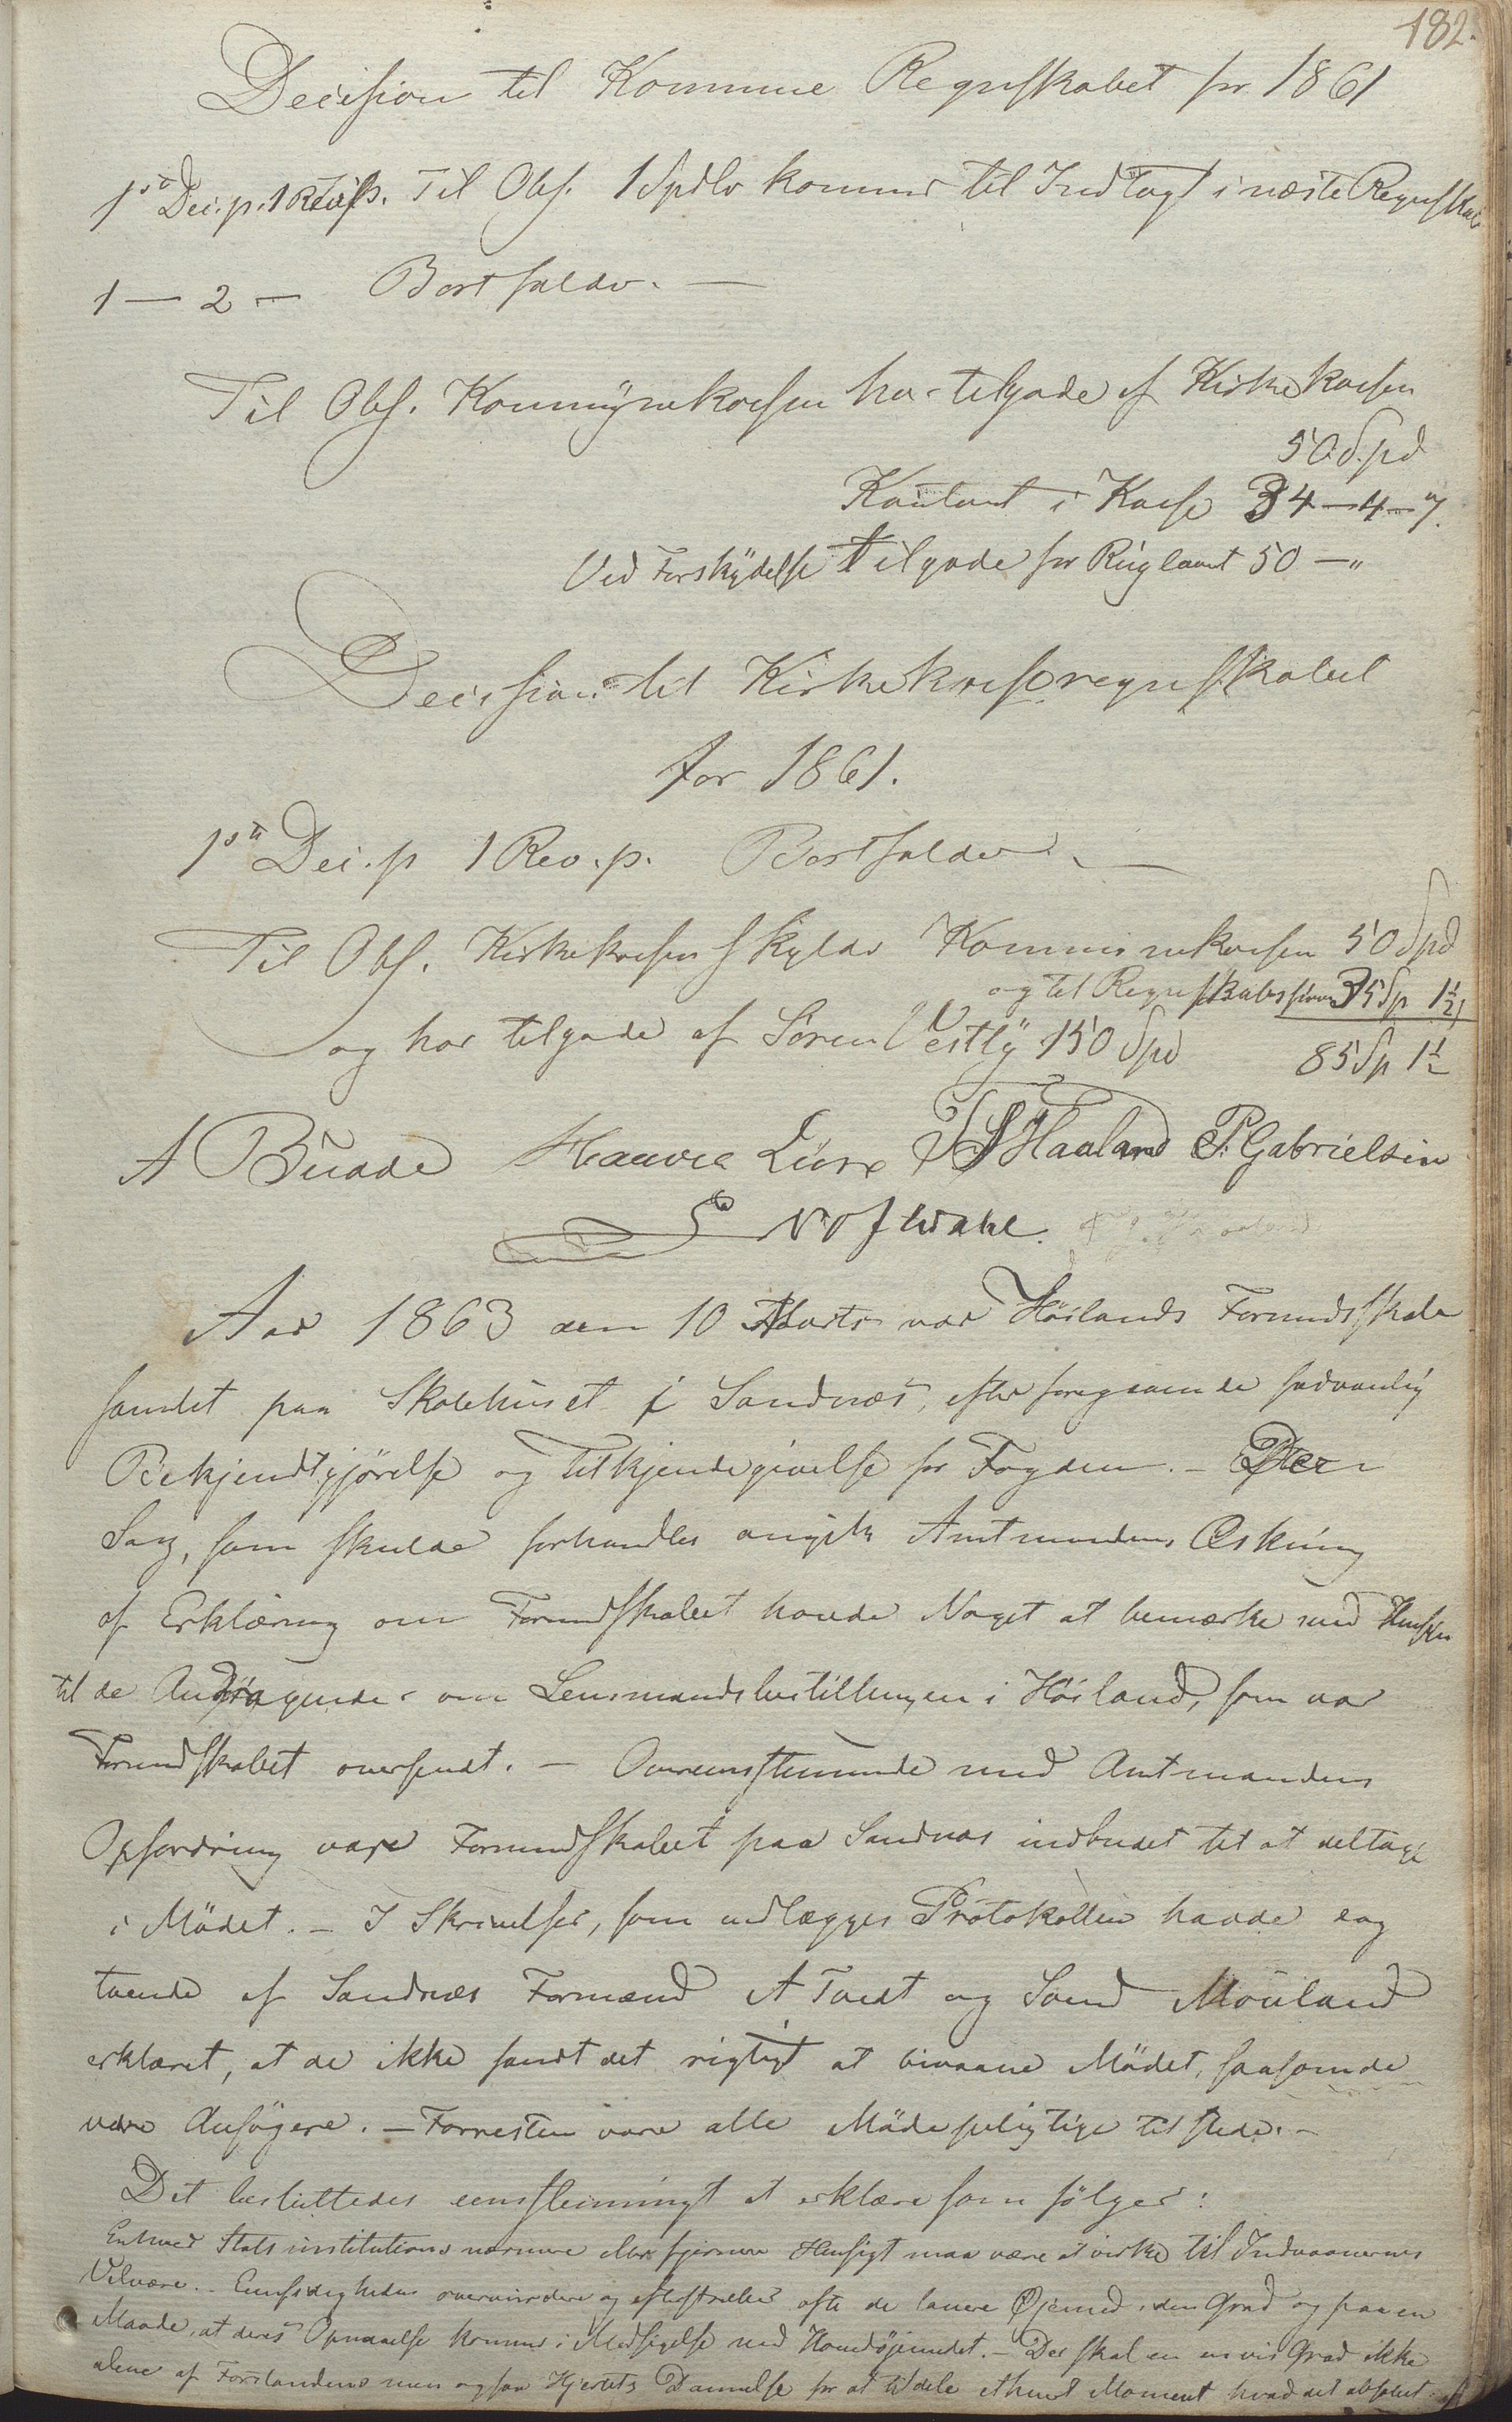 182.
Decision til Kommune Regnskabet for 1861
1ste Dec.p. 1 Til Obs. 1 Spdlr kommer til Indtægt i næste Regnskab
1 — 2 — Bortfalder. —
Til Obs. Kommunekassen har tilgode af Kirkekassen
50 Spd
Kontant i Kasse 34—4—7.
Ved Forskydelse Tilgode for 50 — "
Decision til Kirkekasseregnskabet
for 1861.
1ste Dec.p 1 Rev.p. Bortfalder. —
Til Obs. Kirkekassen skylder Kommunekassen 50 Spd
og til Regnskabsføreren 35 Sp 1½
og har tilgode af Sören Vestly 150 Spd 85 Sp 1½
A Budde Haaver Lura Haaland P. Gabrielsen
N O
Aar 1863 den 10 Marts var Höilands Formandskab
samlet paa Skolehuset i Sandnæs, efter foregaaende sædvanlig
Bekjendtgjörelse og Tilkjendegivelse for Fogden. — Den
Sag, som skulde forhandles angik Amtmandens Æskning
af Erklæring om Formandskabet havde Noget at bemærke med Hensyn
til de Andragender om Lensmandsbestillingen i Höiland, som var
Formandskabet oversendt. — Overensstemmende med Amtmandens
Opfordring vare Formandskabet paa Sandnæs indbudet til at deltage
i Mödet. — I Skrivelser, som vedlægges Protokollen havde og
tvende af Sandnæs Formænd A Tvedt og Svend Mouland
erklæret, at de ikke fandt det rigtigt at bivaane Mödet, saasom de
vare Ansögere. — Forresten vare alle Mödepligtige tilstede. —
Det besluttedes eenstemmigt at erklære som fölger:
Enhver Statsinstitutions nærmere eller fjernere Hensigt maa være at virke til Indvaanernes
Velvære. — Eensidigheden overvurderer og efterstræber ofte de lavere Öiemed i den Grad og paa en
Maade, at deres Opnaaelse kommer i Modsigelse med Hovedöjemedet. — Der skal en en vis Grad ikke
alene af Forstandens men ogsaa Hjertets Dannelse for at tildele ethvert Moment hvad det absolut